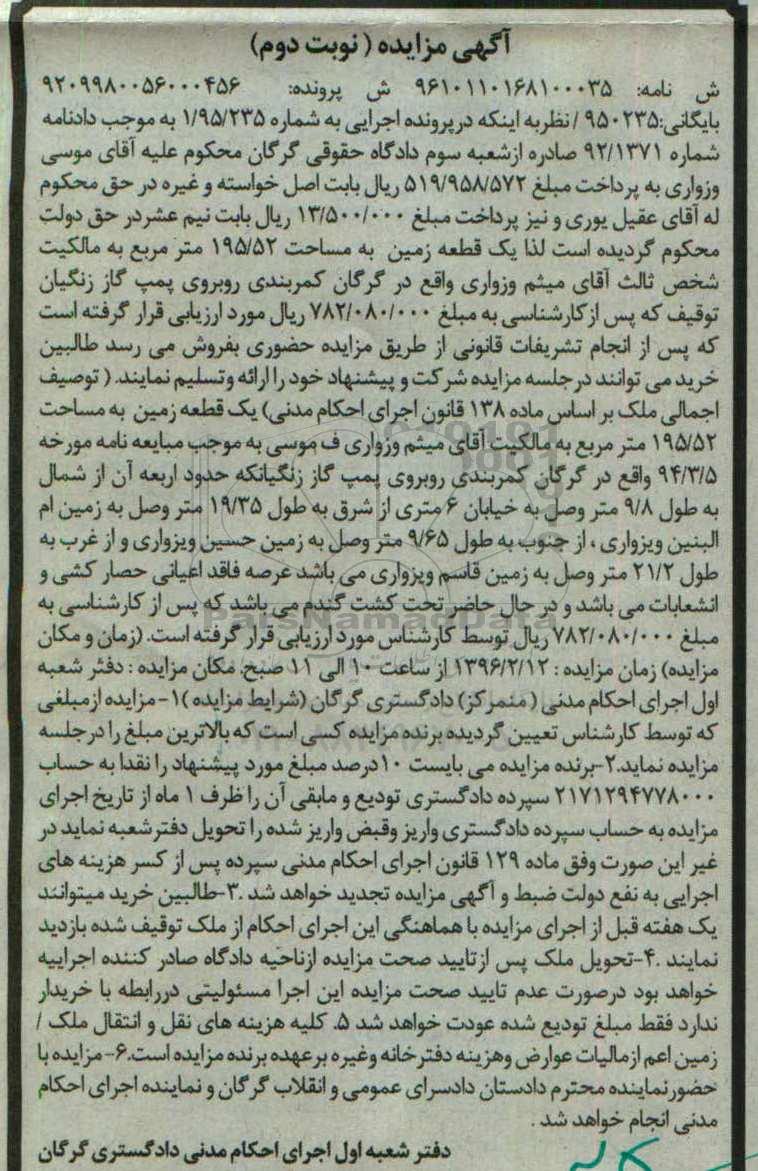 آگهی مزایده ( نوبت دوم)
ش نامه: ۹۶۱۰۱۱۰۱۶۸۱۰۰۰۳۵ ش پرونده: ۹۲۰۹۹۸۰۰۵۶۰۰۰۴۵۶
بایگانی:۹۵۰۲۳۵ / نظربه اینکه درپرونده اجرایی به شماره ۱/۹۵/۲۳۵ به موجب دادنامه
شماره ۹۲/۱۳۷۱ صادره ازشعبه سوم دادگاه حقوقی گرگان محکوم علیه آقای موسی
وزواری به پرداخت مبلغ ۵۱۹/۹۵۸/۵۷۲ ریال بابت اصل خواسته و غیره در حق محکوم
له آقای عقیل یوری و نیز پرداخت مبلغ ۱۳/۵۰۰/۰۰۰ ریال بابت نیم عشردر حق دولت
محکوم گردیده است لذا یک قطعه زمین به مساحت ۱۹۵/۵۲ متر مربع به مالکیت
شخص ثالث آقای میثم وزواری واقع در گرگان کمربندی روبروی پمپ گاز زنگیان
توقیف که پس از کارشناسی به مبلغ ۷۸۲/۰۸۰/۰۰۰ ریال مورد ارزیابی قرار گرفته است
که پس از انجام تشریفات قانونی از طریق مزایده حضوری بفروش می رسد طالبین
خرید می توانند درجلسه مزایده شرکت و پیشنهاد خود را ارائه وتسلیم نمایند. ( توصیف
اجمالی ملک بر اساس ماده ۱۳۸ قانون اجرای احکام مدنی) یک قطعه زمین به مساحت
۱۹۵/۵۲ متر مربع به مالکیت آقای میثم وزواری ف موسی به موجب مبایعه نامه مورخه
۹۴/۳/۵ واقع در گرگان کمربندی روبروی پمپ گاز زنگیانکه حدود اربعه آن از شمال
به طول ۹/۸ متر وصل به خیابان ۶ متری از شرق به طول ۱۹/۳۵ متر وصل به زمین ام
البنین ویزواری ، از جنوب به طول ۹/۶۵ متر وصل به زمین حسین ویزواری و از غرب به
طول ۲۱/۲ متر وصل به زمین قاسم ویزواری می باشد عرصه فاقد اعیانی حصار کشی و
انشعابات می باشد و در حال حاضر تحت کشت گندم می باشد که پس از کارشناسی به
مبلغ ۷۸۲/۰۸۰/۰۰۰ ریال توسط کارشناس مورد ارزیابی قرار گرفته است. (زمان و مکان
مزایده) زمان مزایده : ۱۳۹۶/۲/۱۲ از ساعت ۱۰ الی ۱۱ صبح. مکان مزایده : دفتر شعبه
اول اجرای احکام مدنی ( متمرکز) دادگستری گرگان (شرایط مزایده )۱- مزایده از مبلغی
که توسط کارشناس تعیین گردیده برنده مزایده کسی است که بالاترین مبلغ را درجلسه
مزایده نماید.۲-برنده مزایده می بایست ۱۰درصد مبلغ مورد پیشنهاد را نقدا به حساب
۲۱۷۱۲۹۴۷۷۸۰۰۰ سپرده دادگستری تودیع و مابقی آن را ظرف ۱ ماه از تاریخ اجرای
مزایده به حساب سپرده دادگستری واریز وقبض واریز شده را تحویل دفترشعبه نماید در
غیر این صورت وفق ماده ۱۲۹ قانون اجرای احکام مدنی سپرده پس از کسر هزینه های
اجرایی به نفع دولت ضبط و آگهی مزایده تجدید خواهد شد .۳-طالبین خرید میتوانند
یک هفته قبل از اجرای مزایده با هماهنگی این اجرای احکام از ملک توقیف شده بازدید
نمایند .۴-تحویل ملک پس ازتایید صحت مزایده ازناحیه دادگاه صادر کننده اجراییه
خواهد بود درصورت عدم تایید صحت مزایده این اجرا مسئولیتی دررابطه با خریدار
ندارد فقط مبلغ تودیع شده عودت خواهد شد ۵. کلیه هزینه های نقل و انتقال ملک /
زمین اعم ازمالیات عوارض وهزینه دفترخانه وغیره برعهده برنده مزایده است.۶- مزایده با
حضورنماینده محترم دادستان دادسرای عمومی و انقلاب گرگان و نماینده اجرای احکام
مدنی انجام خواهد شد .
دفتر شعبه اول اجرای احکام مدنی دادگستری گرگان
ParsNamadData